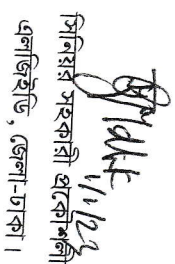 সিনিয়র সহকারী প্রকৌশলী
এলজিইডি, জেলা-ঢাকা।